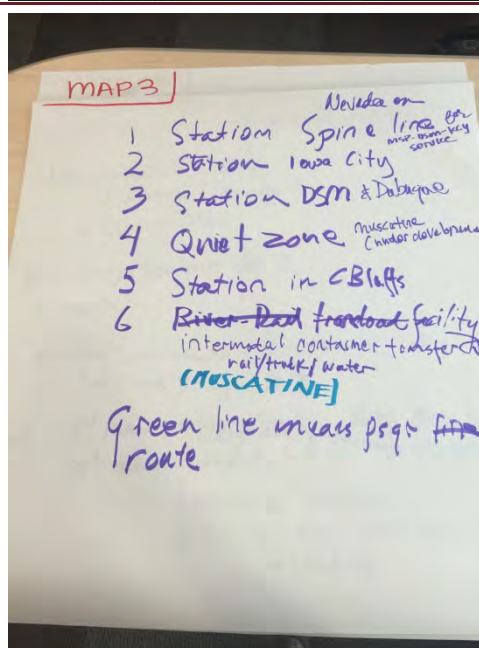 MAP3
Nevada on
1 Station Spine line for
MSP-DSM-KCY
service
2 Station Iowa City
3 Station DSM & Dubuque
4 Quiet zone Muscatine
(under developmen
5 Station in CBluffs
6 River-Rail facility
intermodal container transfer
rail/truck/water
(MUSCATINE)
Green line means psgr
route